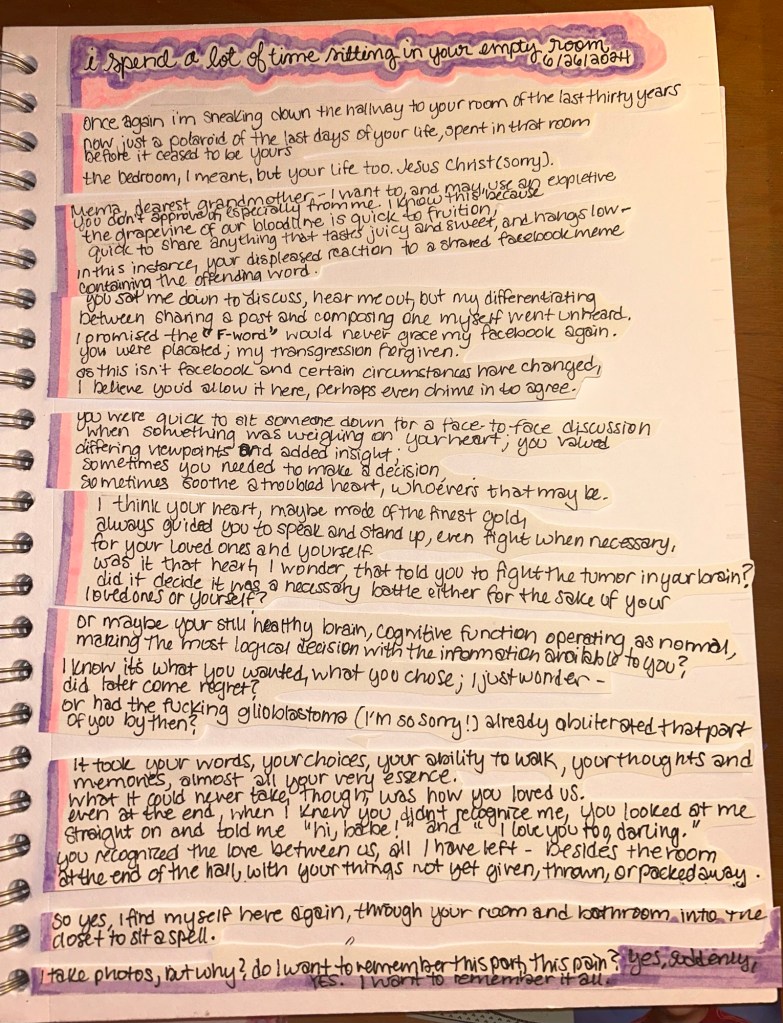 i spend a lot of time sitting in your empty room
6/26/2024
once again i'm sneaking down the hallway to your room of the last thirty years
now just a polaroid of the last days of your life, spent in that room
before it ceased to be yours
the bedroom, I meant, but your life too. Jesus Christ (sorry).
Mema, dearest grandmother - I want to, and may, use an expletive
you don't approve of, especially from me. I know this because
the grapevine of our bloodline is quick to fruition,
quick to share anything that tastes juicy and sweet, and hangs low -
in this instance, your displeased reaction to a shared facebook meme
containing the offending word.
you sat me down to discuss, hear me out, but my differentiating
between sharing a post and composing one myself went unheard.
I promised the "F-word" would never grace my facebook again.
you were placated; my transgression forgiven.
as this isn't facebook and certain circumstances have changed,
I believe you'd allow it here, perhaps even chime in to agree.
you were quick to sit someone down for a face-to-face discussion
when something was weighing on your heart; you valued
differing viewpoints and added insight;
sometimes you needed to make a decision,
sometimes soothe a troubled heart, whoever's that may be.
I think your heart, maybe made of the finest gold,
always guided you to speak and stand up, even fight when necessary,
for your loved ones and yourself.
was it that heart, I wonder, that told you to fight the tumor in your brain?
did it decide it was a necessary battle either for the sake of your
loved ones or yourself?
or maybe your still healthy brain, cognitive function operating as normal,
making the most logical decision with the information available to you?
I know it's what you wanted, what you chose; I just wonder -
did later come regret?
or had the fucking glioblastoma (I'm so sorry!) already obliterated that part
of you by then?
it took your words, your choices, your ability to walk, your thoughts and
memories, almost all your very essence.
what it could never take, though, was how you loved us.
even at the end, when I knew you didn't recognize me, you looked at me
straight on and told me "hi, babe!" and "I love you too, darling."
you recognized the love between us, all I have left - besides the room
at the end of the hall, with your things not yet given, thrown, or packed away.
so yes, I find myself here again, through your room and bathroom, into the
closet to sit a spell.
I take photos, but why? do I want to remember this part, this pain? yes, suddenly,
yes. I want to remember it all.